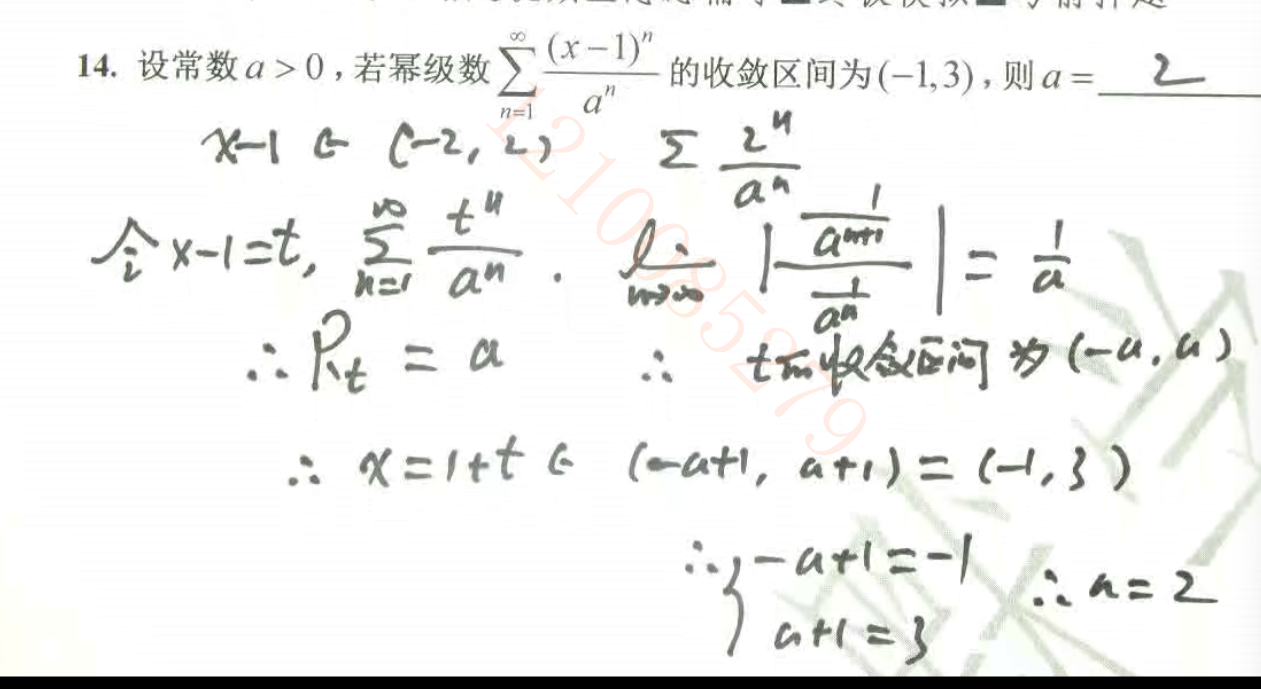 14. 设常数 a > 0，若幂级数 \sum_{n=1}^{\infty} \frac{(x-1)^n}{a^n} 的收敛区间为 (-1,3)，则 a = 2
x-1 ∈ (-2, 2) Σ \frac{2^n}{a^n}
令 x-1=t, \sum_{n=1}^{\infty} \frac{t^n}{a^n} . \lim_{n→∞} \left| \frac{\frac{1}{a^{n+1}}}{\frac{1}{a^n}} \right| = \frac{1}{a}
∴ R_t = a ∴ t的收敛区间为 (-a, a)
∴ x=1+t ∈ (-a+1, a+1) = (-1, 3)
∴ { -a+1=-1 ∴ a=2
a+1=3
1210985279